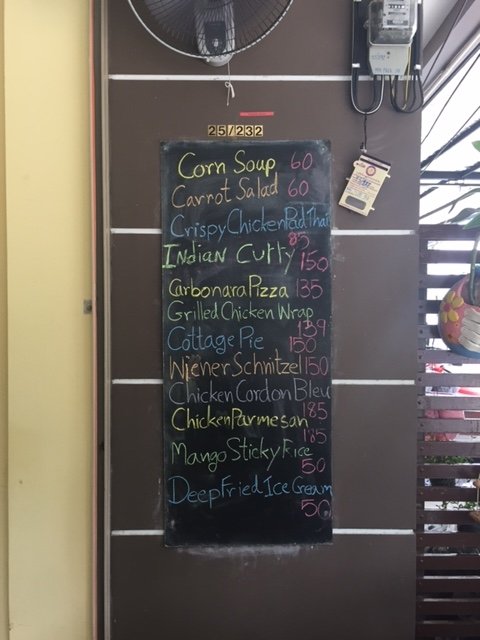 25/232
Corn Soup 60
Carrot Salad 60
Crispy Chicken Pad Thai
85
Indian Curry 150
Carbonara Pizza 135
Grilled Chicken Wrap
139
Cottage Pie 150
Wiener Schnitzel 150
Chicken Cordon Bleu
185
Chicken Parmesan
185
Mango Sticky Rice
50
Deep Fried Ice Cream
50